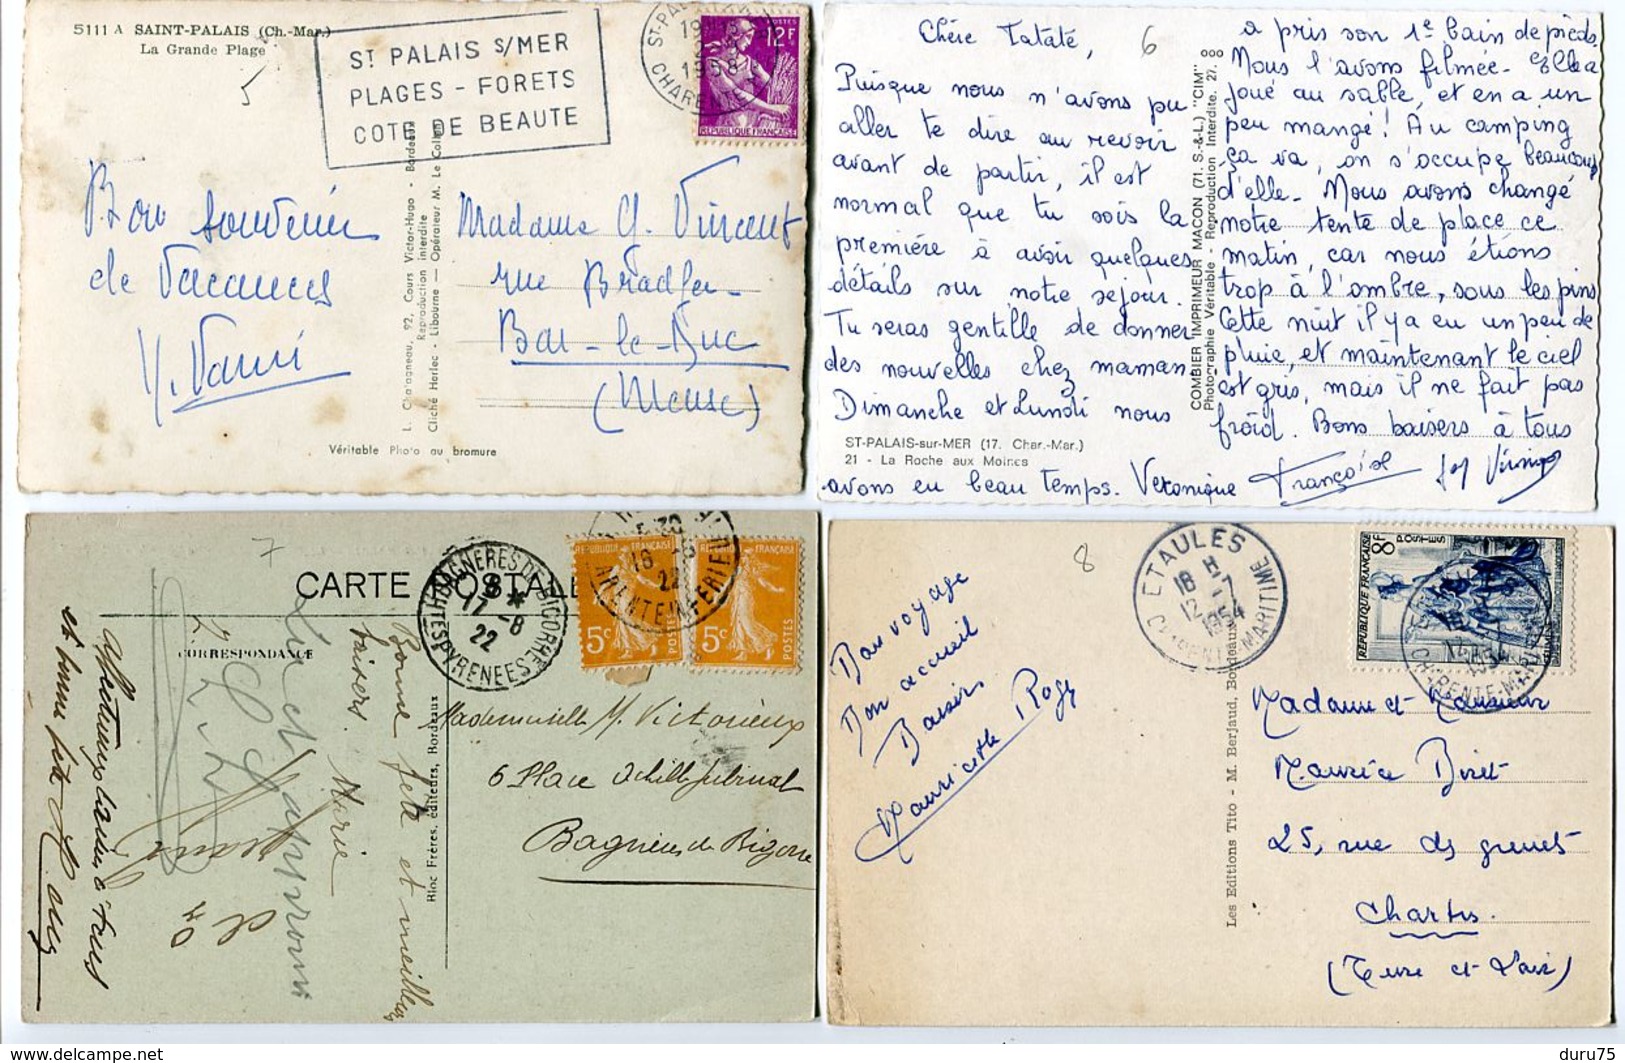 5111 A SAINT-PALAIS (Ch.-Mar.)
La Grande Plage
5
ST PALAIS S/MER
PLAGES - FORETS
COTE DE BEAUTE
1958
CHARENTE
POSTES
12F
REPUBLIQUE FRANÇAISE
Bon souvenir
de Vacances
Madame G. Vincent
rue Bradfer
Bar-le-Duc
(Meuse)
L. Chatagneau, 92, Cours Victor-Hugo - Bordeaux
Reproduction interdite
Cliché Herlec - Libourne — Opérateur M. Le Collen
Véritable Photo au bromure
Chère Tataté,
6
Puisque nous n'avons pu
aller te dire au revoir
avant de partir, il est
normal que tu sois la
première à avoir quelques
détails sur notre séjour.
Tu seras gentille de donner
des nouvelles chez maman
Dimanche et Lundi nous
avons eu beau temps. Veronique
a pris son 1e bain de pieds.
Nous l'avons filmée. Elle a
joué au sable, et en a un
peu mangé! Au camping
ça va, on s'occupe beaucoup
d'elle. Nous avons changé
notre tente de place ce
matin, car nous étions
trop à l'ombre, sous les pins
Cette nuit il y a eu un peu de
pluie, et maintenant le ciel
est gris, mais il ne fait pas
froid. Bons baisers à tous
Françoise
ST-PALAIS-sur-MER (17. Char.-Mar.)
21 - La Roche aux Moines
COMBIER IMPRIMEUR MACON (71. S.-&-L.) "CIM"
Photographie Véritable - Reproduction Interdite. 27.
7
CARTE POSTALE
CORRESPONDANCE
BAGNERES DE BIGORRE
17 -8
22
HTES PYRENEES
18 -8
22
5c
5c
POSTES
Bonne fête et meilleurs
baisers. Marie
et bonne fête
Mademoiselle M. Victorieux
6 Place Achille Jubinal
Bagnères de Bigorre
Bloc Frères, éditeurs, Bordeaux
8
ETAULES
18 H
12 -7
1954
CHARENTE MARITIME
8F
POSTES
REPUBLIQUE FRANÇAISE
Bon voyage
Bon accueil
Baisers
Mauricette Roger
Madame et Monsieur
Maurice Biret
25, rue des grenets
Chartres.
(Eure et Loir)
Les Editions Tito - M. Berjaud, Bordeaux
delcampe.net
duru75